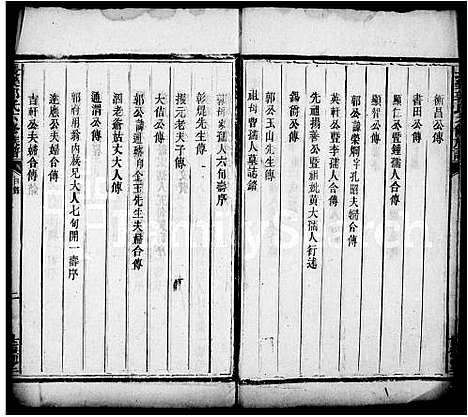 衡昌公傳
書田公傳
顯仁公暨鍾孺人合傳
顯智公傳
郭公諱榮炯字孔昭夫婦合傳
英軒公暨李孺人合傳
先祖揚善公暨祖妣黃大孺人行述
錫濤公傳
郭公玉山先生傳
祖母曹孺人墓誌銘
孺人六旬壽序
彰堤先生傳
振元老夫子傳
大佑公傳
郭公諱通 金玉先生夫婦合傳
泗老爺姑丈大人傳
通渭公傳
郭府用翁內叔兄大人七旬開一壽序
達應公夫婦合傳
吉軒公夫婦合傳